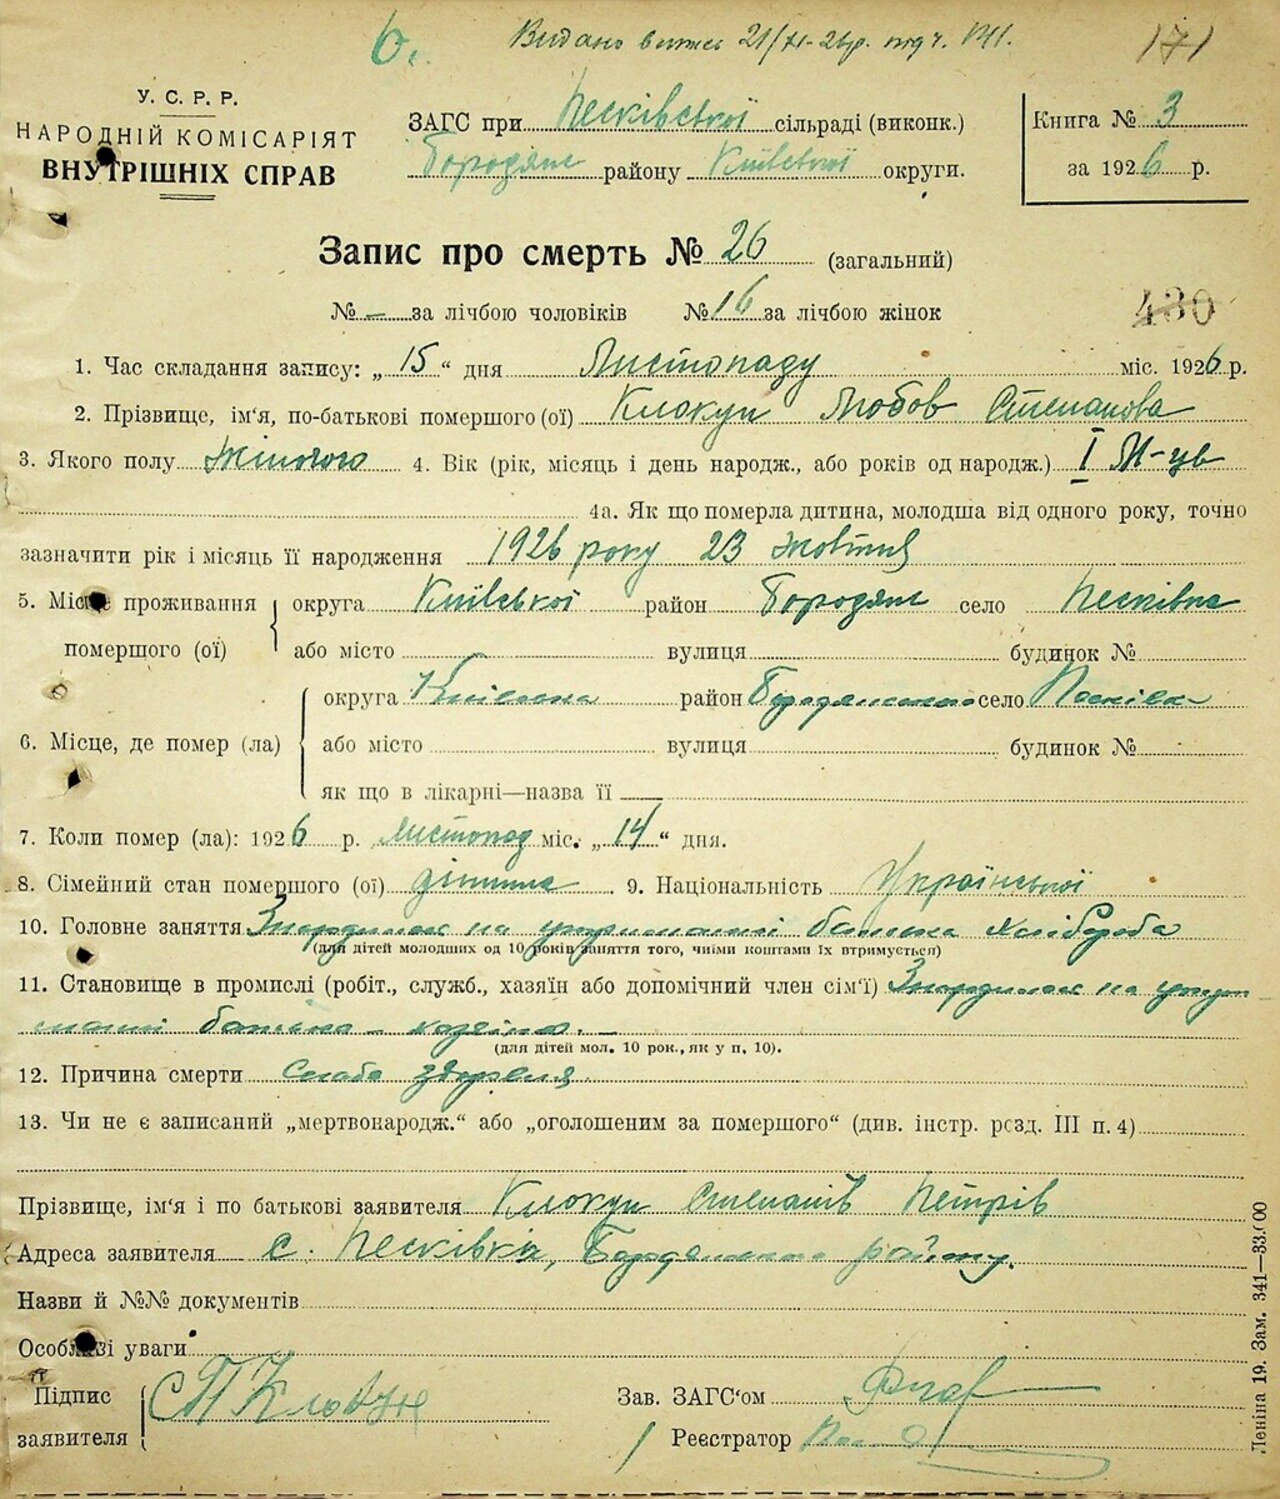 6.
Видано витяг 21/XI-26р. під ч. 171.
171
У. С. Р. Р.
НАРОДНІЙ КОМІСАРІЯТ
ВНУТРІШНІХ СПРАВ
ЗАГС при Песківської сільраді (виконк.)
Бородян району Київської округи.
Книга № 3
за 1926 р.
Запис про смерть № 26 (загальний)
№ – за лічбою чоловіків № 16 за лічбою жінок
430
1. Час складання запису: „15“ дня Листопаду міс. 1926 р.
2. Прізвище, ім‘я, по-батькові помершого (ої) Клокун Любов Степанова
3. Якого полу Жіночого 4. Вік (рік, місяць і день народж., або років од народж.) I М-ць
4а. Як що померла дитина, молодша від одного року, точно
зазначити рік і місяць її народження 1926 року 23 жовтня
5. Місце проживання помершого (ої) округа Київської район Бородян село Песківка
або місто вулиця будинок №
6. Місце, де помер (ла) округа Київська район Бородянського село Песківка
або місто вулиця будинок №
як що в лікарні—назва її —
7. Коли помер (ла): 1926 р. Листопад міс. „14“ дня.
8. Сімейний стан помершого (ої) дитина 9. Національність Української
10. Головне заняття Знаходилась на утриманні батька хлібороба
(для дітей молодших од 10 років заняття того, чиїми коштами їх втримується)
11. Становище в промислі (робіт., служб., хазяїн або допомічний член сім‘ї) Знаходилась на утри
манні батька – хазяїна. –
(для дітей мол. 10 рок., як у п. 10).
12. Причина смерти Слабе здоровля.
13. Чи не є записаний „мертвонародж.“ або „оголошеним за помершого“ (див. інстр. розд. III п. 4)
Прізвище, ім‘я і по батькові заявителя Клокун Степанів Петрів
Адреса заявителя с. Песківка, Бородянського району.
Назви й №№ документів
Особливі уваги
Підпис заявителя С П Клокун
Зав. ЗАГС‘ом
Реєстратор
Леніна 19. Зам. 341—33.000